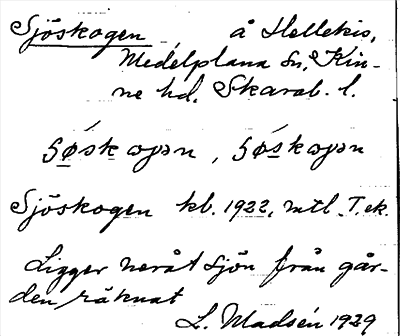 Sjöskogen, å Hellekis,
Medelplana sn, Kin-
ne hd. Skarab. l.
Sjöskogen kb. 1922, mtl. J. ek.
Ligger neråt sjön från går-
den räknat
L. Madsén 1929